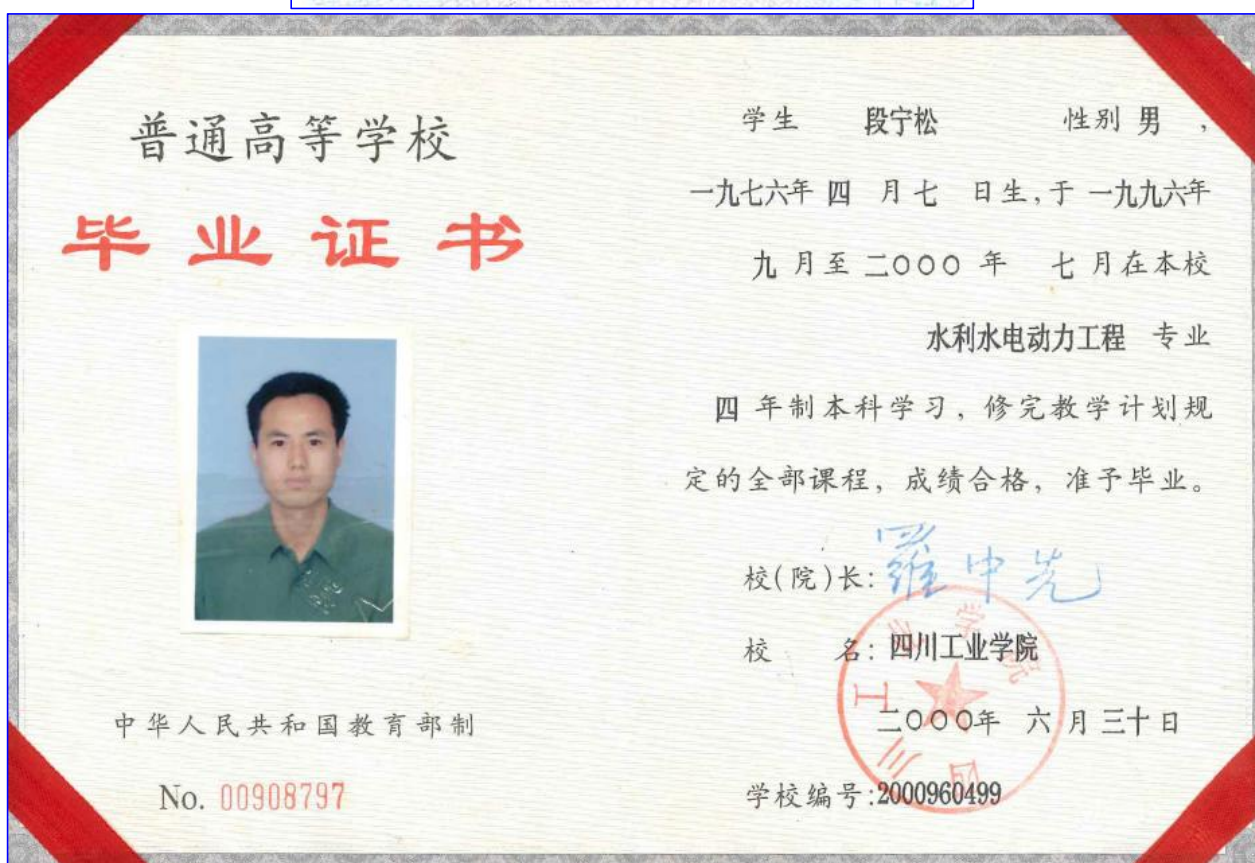 普通高等学校
毕业证书
中华人民共和国教育部制
No. 00908797
学生 段宁松 性别 男 ,
一九七六年 四 月 七 日生,于 一九九六年
九 月至 二〇〇〇 年 七 月在本校
水利水电动力工程 专业
四 年制本科学习, 修完教学计划规
定的全部课程, 成绩合格, 准予毕业。
校(院)长: 羅中先
校 名: 四川工业学院
二〇〇〇年 六 月 三十 日
学校编号:2000960499
四川工业学院